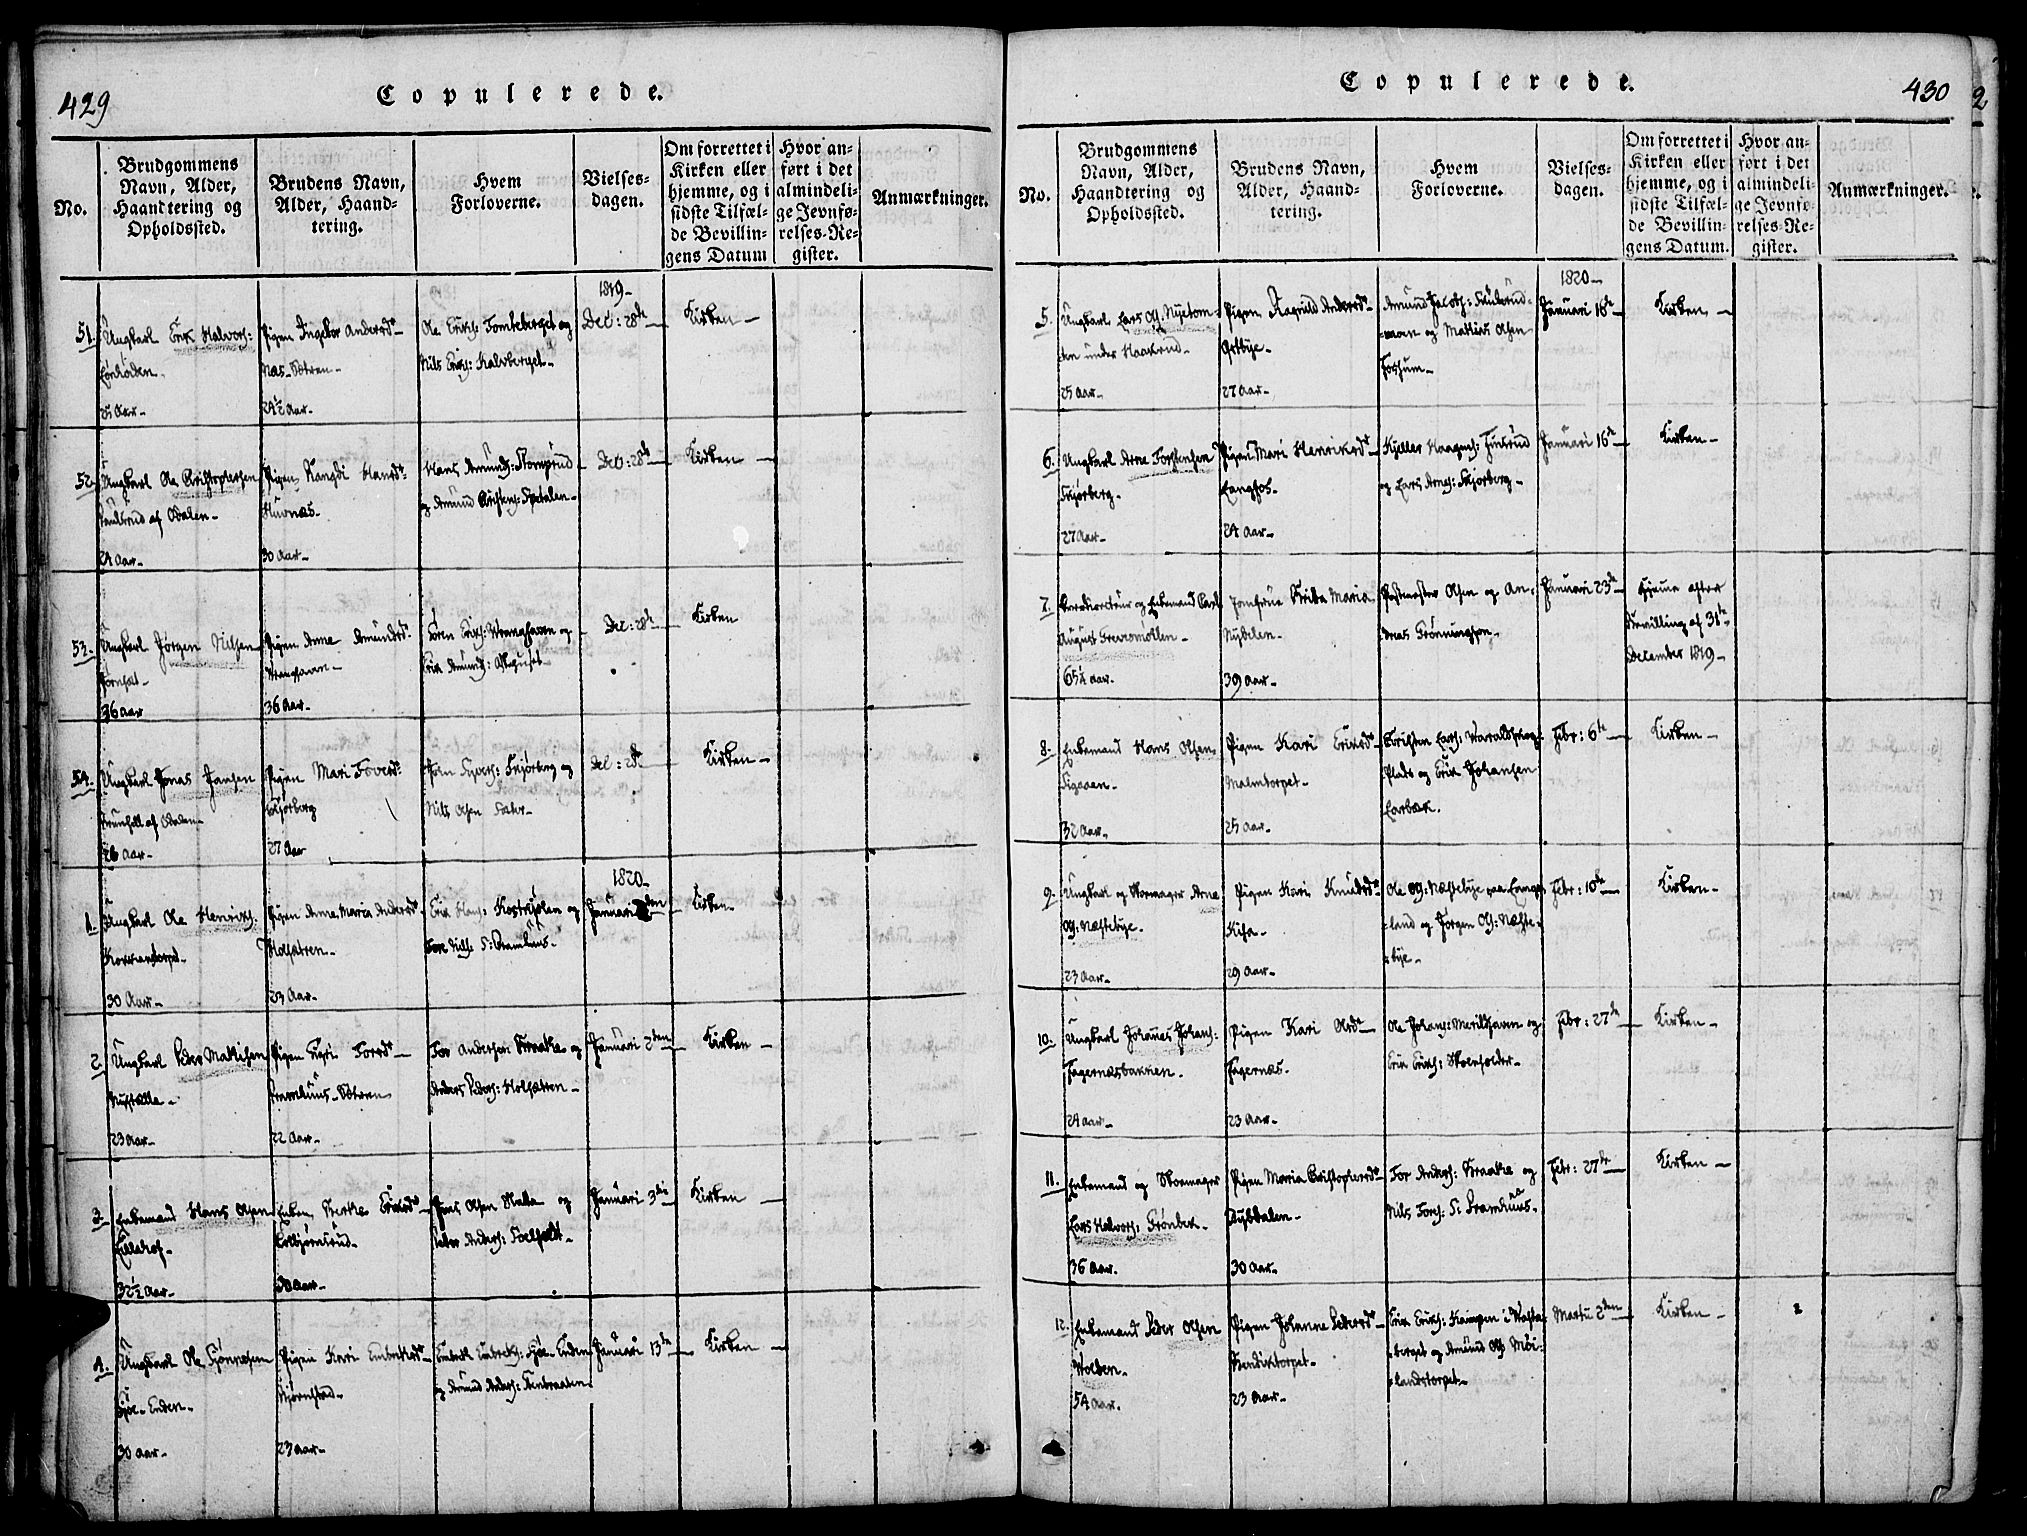 429
Copulerede.
No.
Brudgommens
Navn, Alder,
Haandtering og
Opholdssted.
Brudens Navn,
Alder, Haand-
tering.
Hvem
Forloverne.
Vielses-
dagen.
Om forrettet i
Kirken eller
hjemme, og i
sidste Tilfæl-
de Bevillin-
gens Datum
Hvor an-
ført i det
almindeli-
ge Jevnfø-
relses-Re-
gister.
Anmærkninger.
51.
Ungkarl Erik Halvors:
25 Aar.
Pigen Ingebor Andersd.
Næs-Sætren
24½ Aar.
Ole Erichs: Tomteberget og
Nils Erichs: Kalvberget
1819
Dec: 28de
Kirken
52.
Ungkarl Ole Christophersen
Paulsrud af Odalen
24 Aar
Pigen Rangdi Hansd.
30 Aar
Hans Amunds: Stomprud
og Amund Christens: Spetalen
Dec: 28de
Kirken
53.
Ungkarl Jørgen Nilsen
36 Aar
Pigen Anne Amundsd.
36 Aar
Søren Erichs: Vranghaven og
Erik Amunds:
Dec: 28de
Kirken
54.
Ungkarl Jonas Jansen
af Odalen
26 Aar
Pigen Mari Toresd.
Skjørberg
27 Aar
Skjørberg og
Nils Olsen Sæter
Dec: 28de
Kirken
1.
Ungkarl Ole Henrichs:
30 Aar
Pigen Anne Maria Andersd.
Holsætren
23 Aar
Erik Hans: og
Tore Nils: S: Bramhuus
1820
Januari den
Kirken
2.
Ungkarl Peder Mathisen
23 Aar
Pigen Sigri Torsd.
22 Aar
Tor Andersen Braate og
Anders Peders: Holsætren
Januari 2den
Kirken
3.
Enkemand Hans Olsen
Lillehof
32½ Aar
Enken Berte Erichsd.
Esbjørnsrud
30 Aar
Jens Olsen og
Peder Anders:
Januari 3die
Kirken
4.
Ungkarl Ole Sjønnesen
Sjøe-Enden
30 Aar
Pigen Kari Embretsd.
Bjørnstad
23 Aar
Embret Embrets: Sjøe-Enden
og Amund Anders:
Januari 13de
Kirken
Copulerede.
430
No.
Brudgommens
Navn, Alder,
Haandtering og
Opholdssted.
Brudens Navn,
Alder, Haand-
tering.
Hvem
Forloverne.
Vielses-
dagen.
Om forrettet i
Kirken eller
hjemme, og i
sidste Tilfæl-
de Bevillin-
gens Datum.
Hvor an-
ført i det
almindeli-
ge Jevnfø-
relses-Re-
gister.
Anmærkninger.
5.
Ungkarl Lars Ols: Nyetom-
ten under Haakrud
25 Aar
Pigen Ragnild Andersd.
Østbye
27 Aar
Amund Jacobs:
og Mathias Olsen
Fossum
1820
Januari 16de
Kirken
6.
Ungkarl Arne Torstensen
Skjørberg
27 Aar
Pigen Mari Henriksd.
Langfos
24 Aar
Kjeller Haagens:
og Lars Arnes: Skjørberg
Januari 16de
Kirken
7.
og Enkemand Carl
August Grevesmøllen
65¼ Aar
Jomfrue Maria
Nydelen
39 Aar
Postmester Olsen og An-
dreas Grønningsen
Januari 23de
Hjemme efter
Bevilling af 31te
December 1819
8.
Enkemand Hans Olsen
Sigaaen
32 Aar
Pigen Kari Erichsd.
Malmtorpet
25 Aar
Christen Lars: Varaldskog-
Plads og Erik Johansen
Lærbæk
Febr: 6te
Kirken
9.
Ungkarl og Skomager Arne
Ols: Næstebye
23 Aar
Pigen Kari Knudsd.
Kisa
29 Aar
Ole Ols: Næstebye paa Lange-
land og Jørgen Ols: Næste-
bye
Febr: 10de
Kirken
10.
Ungkarl Johannes Johans:
Fagernæsbakken
24 Aar
Pigen Kari Olsd.
Fagernæs
23 Aar
Ole Johans: og
Erik Erichs:
Febr: 27de
Kirken
11.
Enkemand og Skomager
Lars Halvors: Grønbek
36 Aar
Pigen Maria Christophersd.
Dybdalen
30 Aar
Tor Anders: Braate og
Nils Tors: S: Bramhuus
Febr: 27de
Kirken
12.
Enkemand Peder Olsen
Volden
54 Aar
Pigen Johanne Pedersd.
Bendiktorpet
23 Aar
Erik Erichs: Kampen i
berget og Amund Ols: Møi-
landstorpet
Martii 2den
Kirken